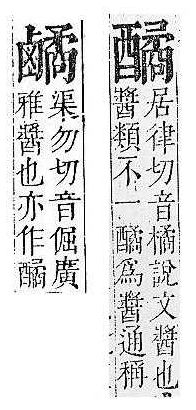 䤎
居律切音橘說文醬也
醬類不一䤎為醬通稱
⿰鹵矞
渠勿切音倔廣
雅醬也亦作䤎